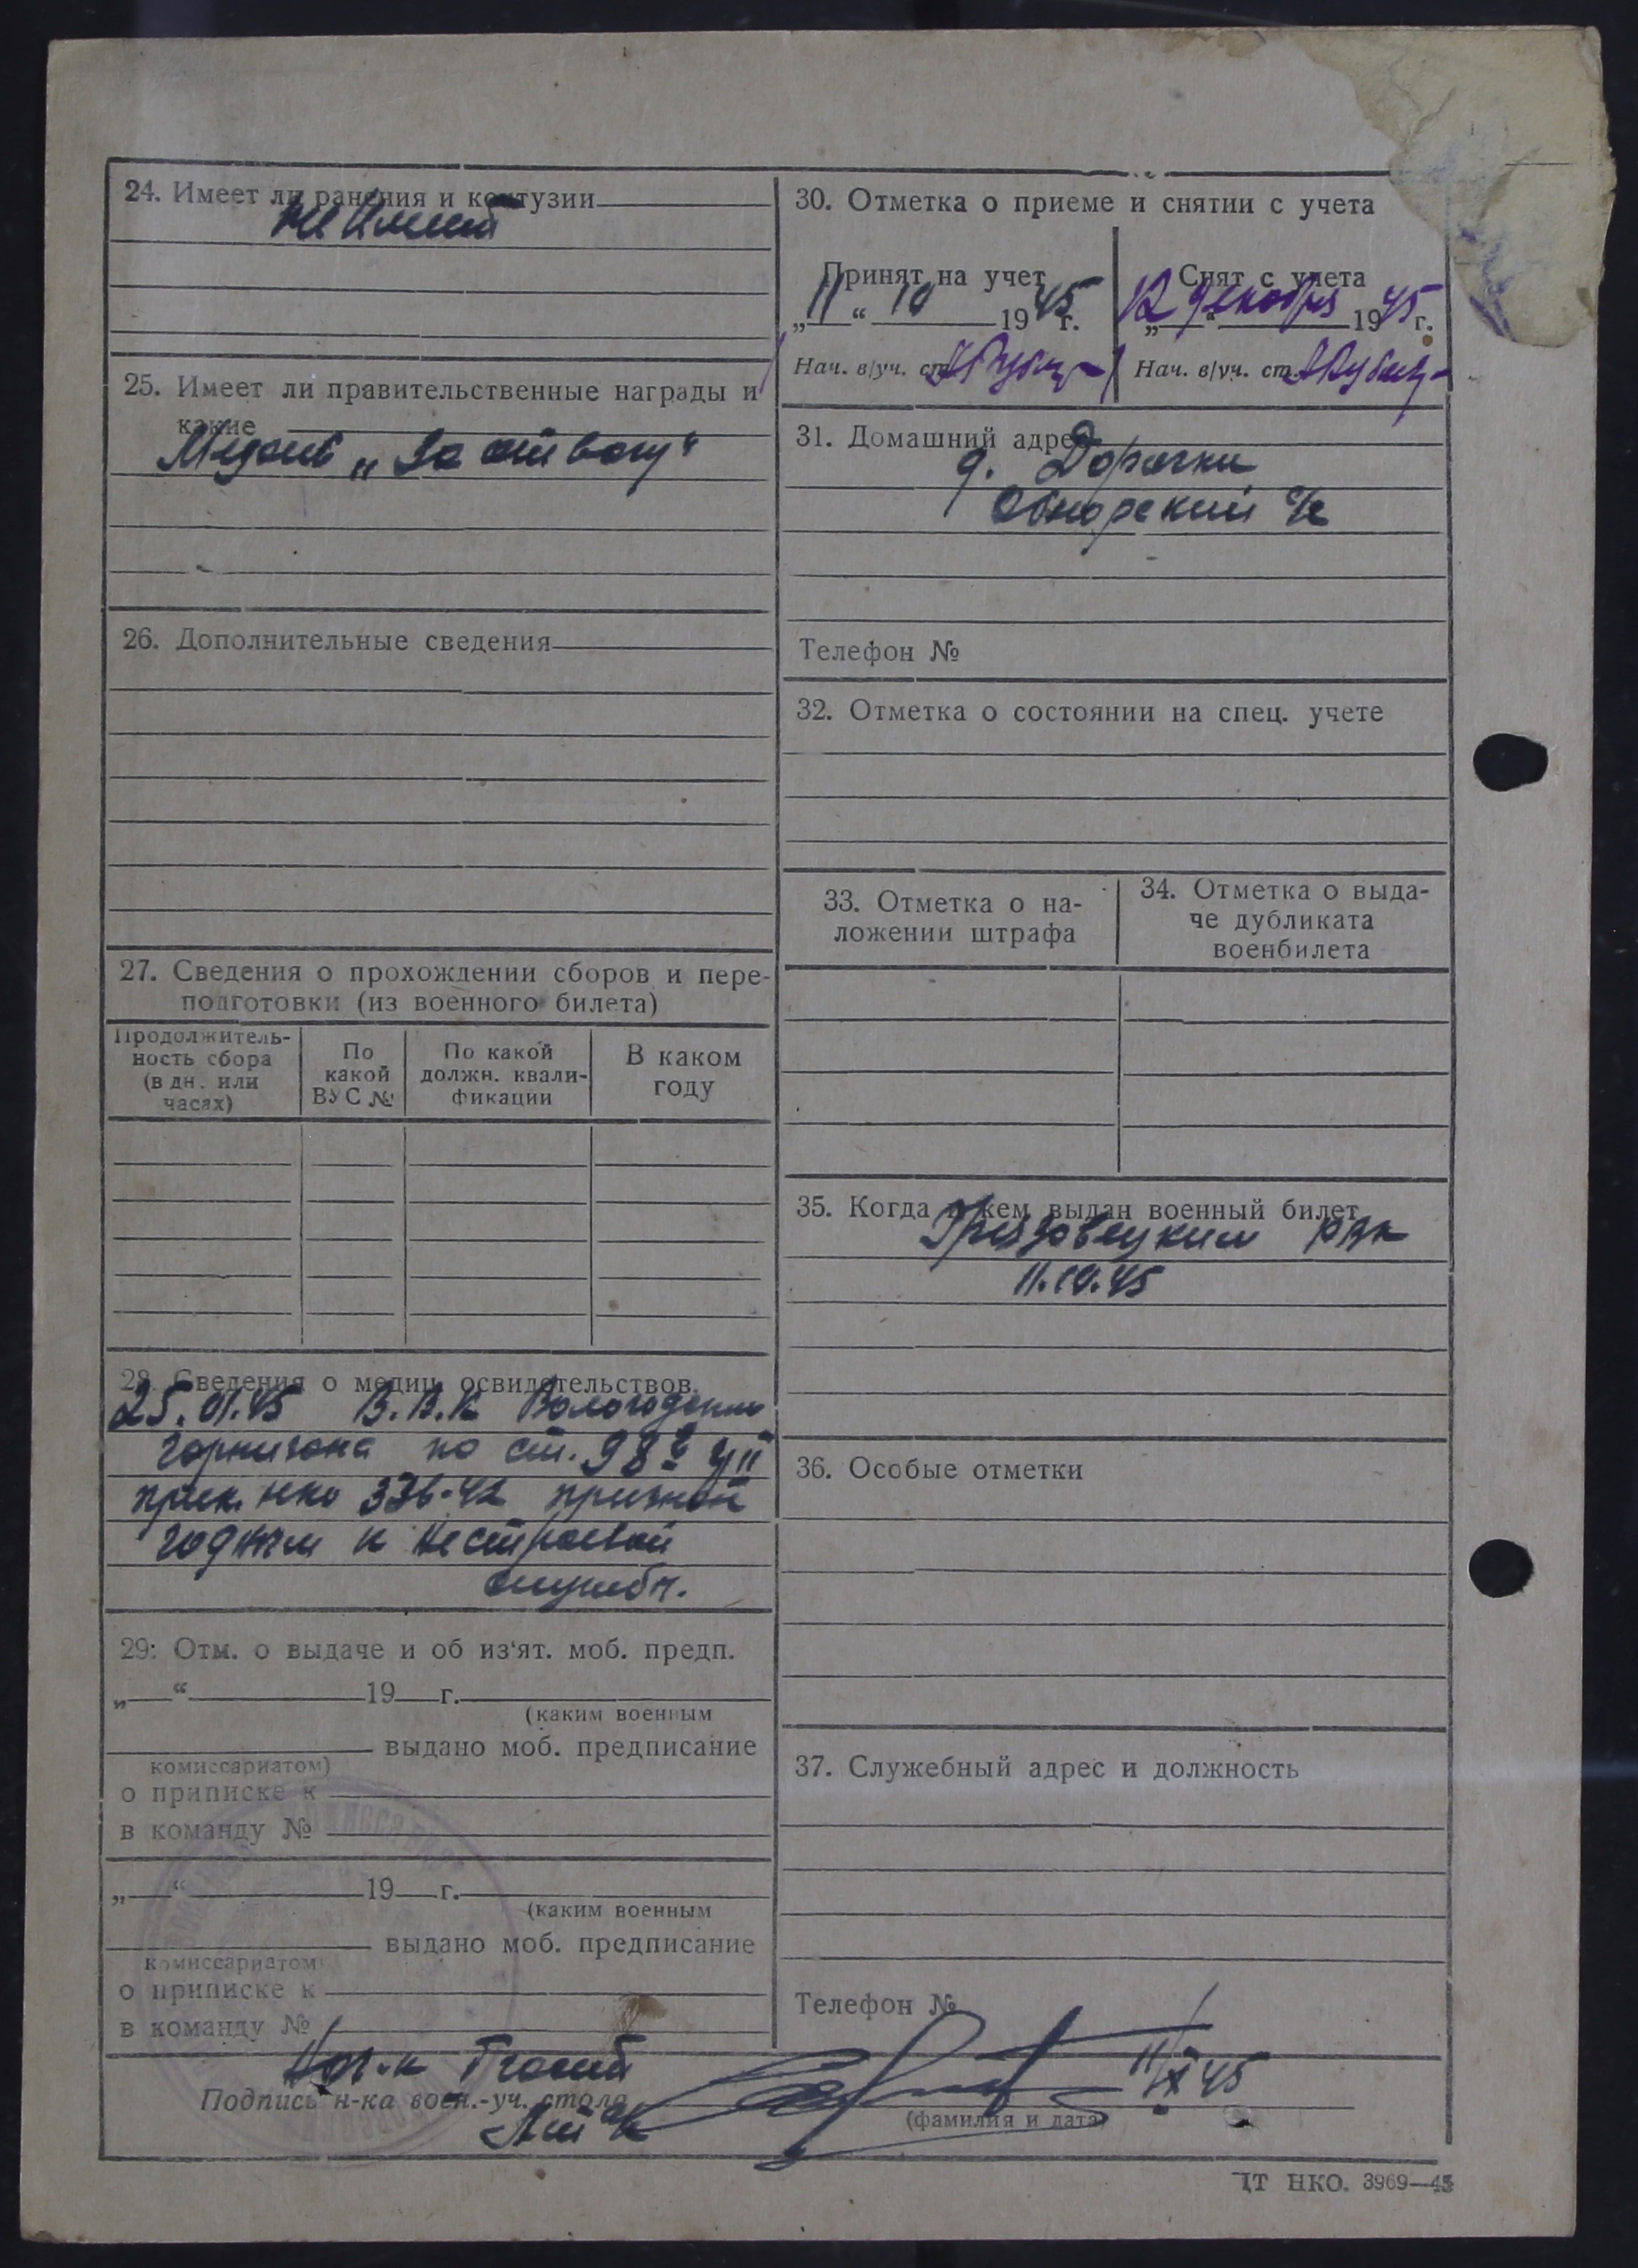 24. Имеет ли ранения и контузии
не имеет
25. Имеет ли правительственные награды и
какие
Медаль „За отвагу“
26. Дополнительные сведения
27. Сведения о прохождении сборов и пере-
подготовки (из военного билета)
Продолжитель-
ность сбора
(в дн. или
часах)
По
какой
ВУС №
По какой
должн. квали-
фикации
В каком
году
28. Сведения о медиц. освидетельствов.
В.В.К Вологодским
гарнизона по ст. 98
прик. нко 336-42 признан
годным к нестроевой
службы.
29: Отм. о выдаче и об из‘ят. моб. предп.
„ “ 19 г.
(каким военным
выдано моб. предписание
комиссариатом)
о приписке к
в команду №
„ “ 19 г.
(каким военным
выдано моб. предписание
комиссариатом)
о приписке к
в команду №
30. Отметка о приеме и снятии с учета
Принят на учет
„11“ 10 1945 г.
Нач. в/уч. ст.
Снят с учета
„12“ декабря 1945 г.
Нач. в/уч. ст.
31. Домашний адрес
д. Дорожки
Обнорский с/с
Телефон №
32. Отметка о состоянии на спец. учете
33. Отметка о на-
ложении штрафа
34. Отметка о выда-
че дубликата
военбилета
35. Когда и кем выдан военный билет
Грязовецким рвк
11.10.45
36. Особые отметки
37. Служебный адрес и должность
Телефон №
Нач. 1 части
Подпись н-ка воен.-уч. стола
(фамилия и дата)
НКО. 3969—45